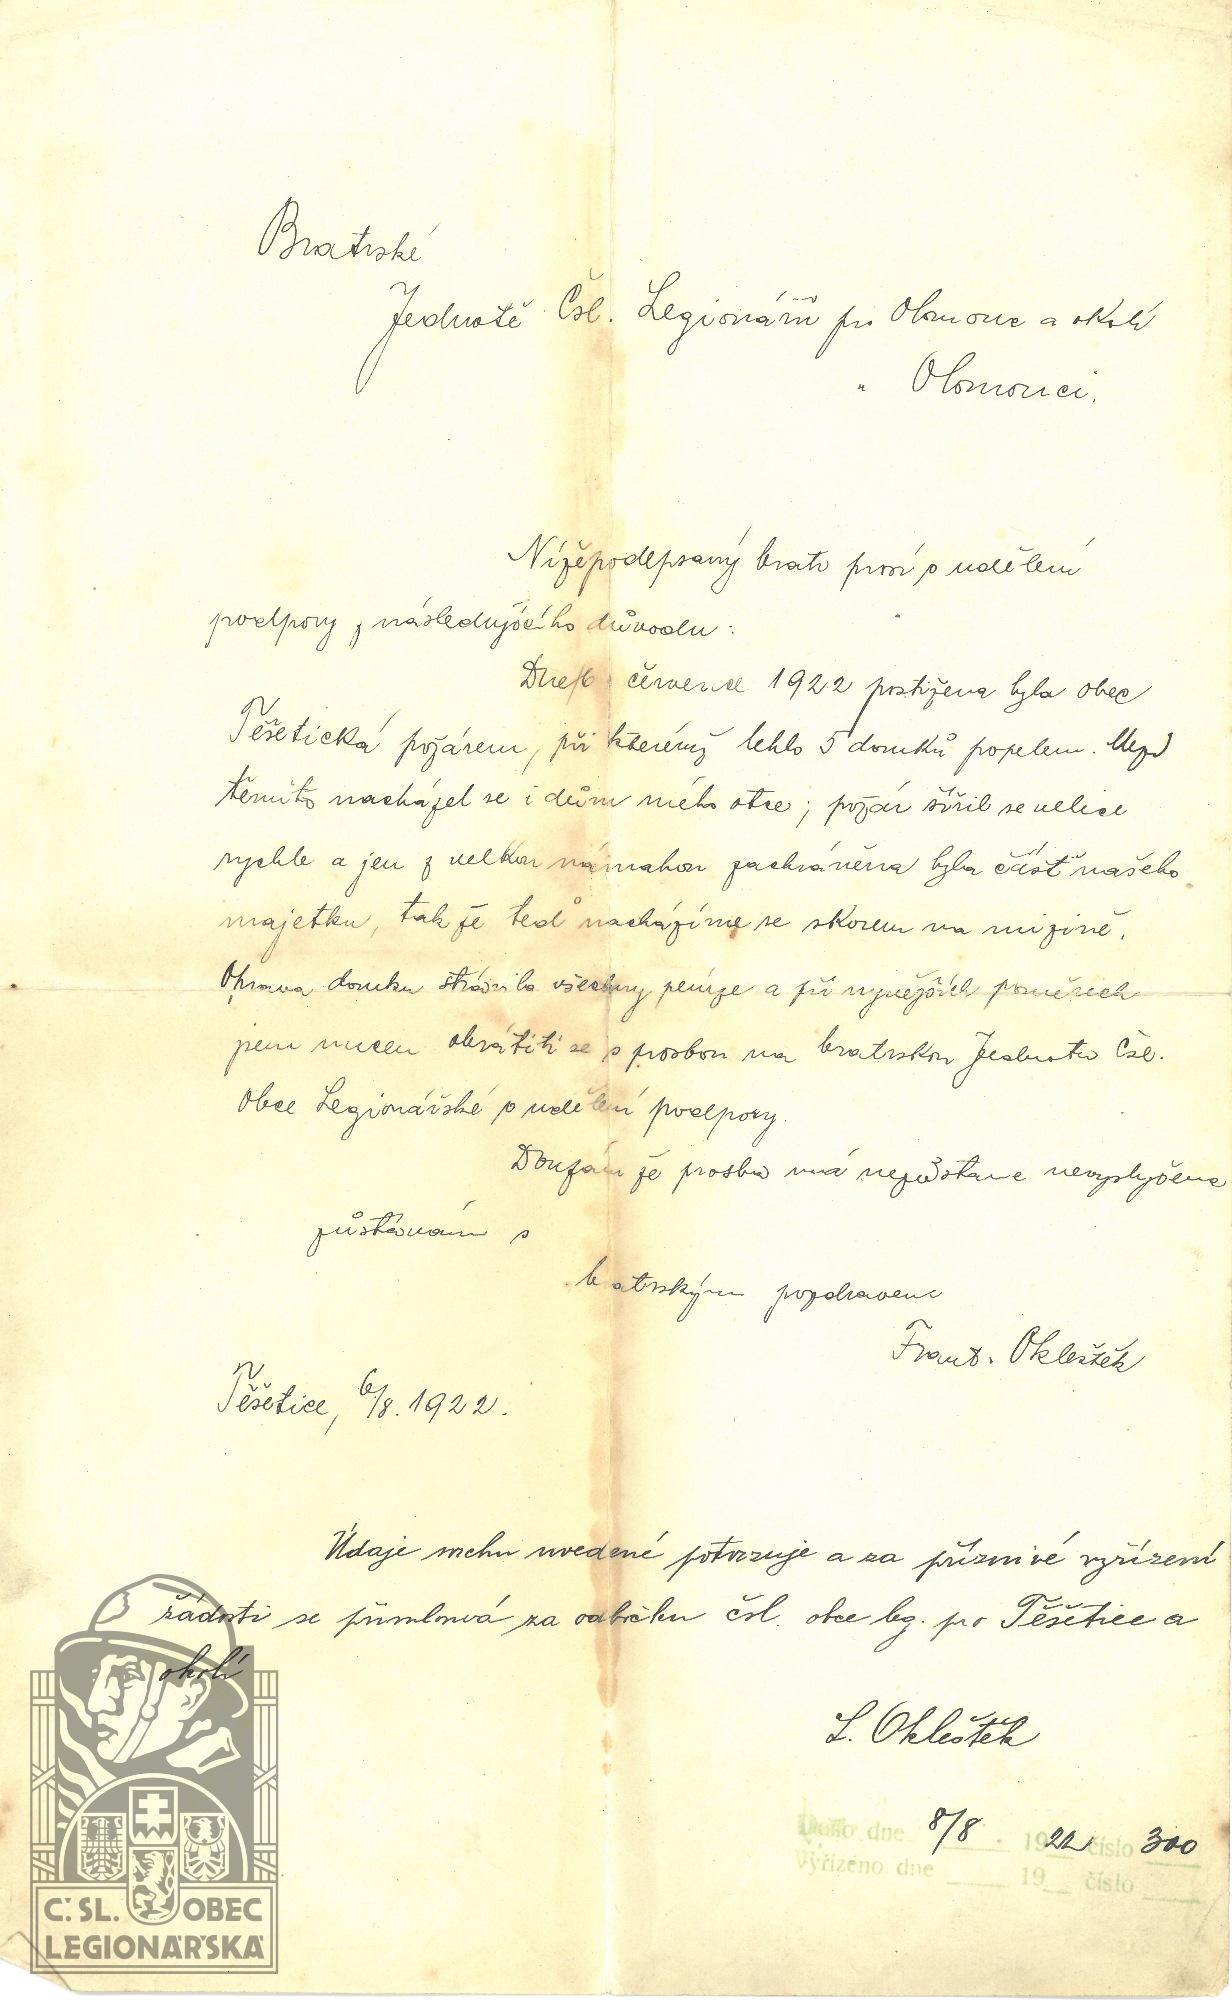 Bratrské
Jednotě Čsl. Legionářů pro Olomouc a okolí
v Olomouci.
Nížepodepsaný bratr prosí o udělení
podpory z následujícího důvodu:
Dne 6 července 1922 postižena byla obec
Těšetická požárem, při kterémž lehlo 5 domků popelem. Mezi
těmito nacházel se i dům mého otce; požár šířil se velice
rychle a jen z velkou námahou zachráněna byla část našeho
majetku, tak že teď nacházíme se skorem na mizině.
Oprava domku strávila všechny peníze a při nynějších poměrech
jsem nucen obrátiti se s prosbou na bratrskou Jednotu Čsl.
Obce Legionářské o udělení podpory.
Doufám že prosba má nezůstane nevyslyšena
zůstávám s
bratrským pozdravem
Frant. Oklešťěk
Těšetice, 6/8. 1922.
Údaje svrchu uvedené potvrzuje a za příznivé vyřízení
žádosti se přimlouvá za odbočku čsl. obce leg. pro Těšetice a
okolí
L. Oklešťěk
Došlo dne 8/8. 1922 číslo 300
Vyřízeno dne 19 číslo
Č. SL. OBEC
LEGIONÁŘSKÁ